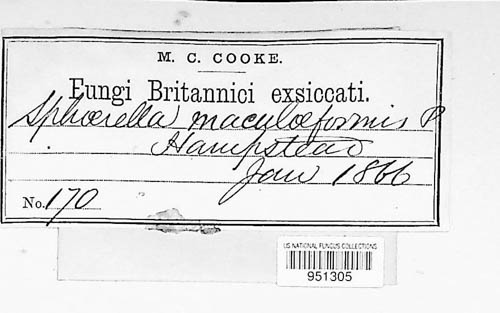 M. C. COOKE.
Fungi Britannici exsiccati.
Sphærella maculæformis P
Hampstead
Jan 1866
No. 170
US NATIONAL FUNGUS COLLECTIONS
951305